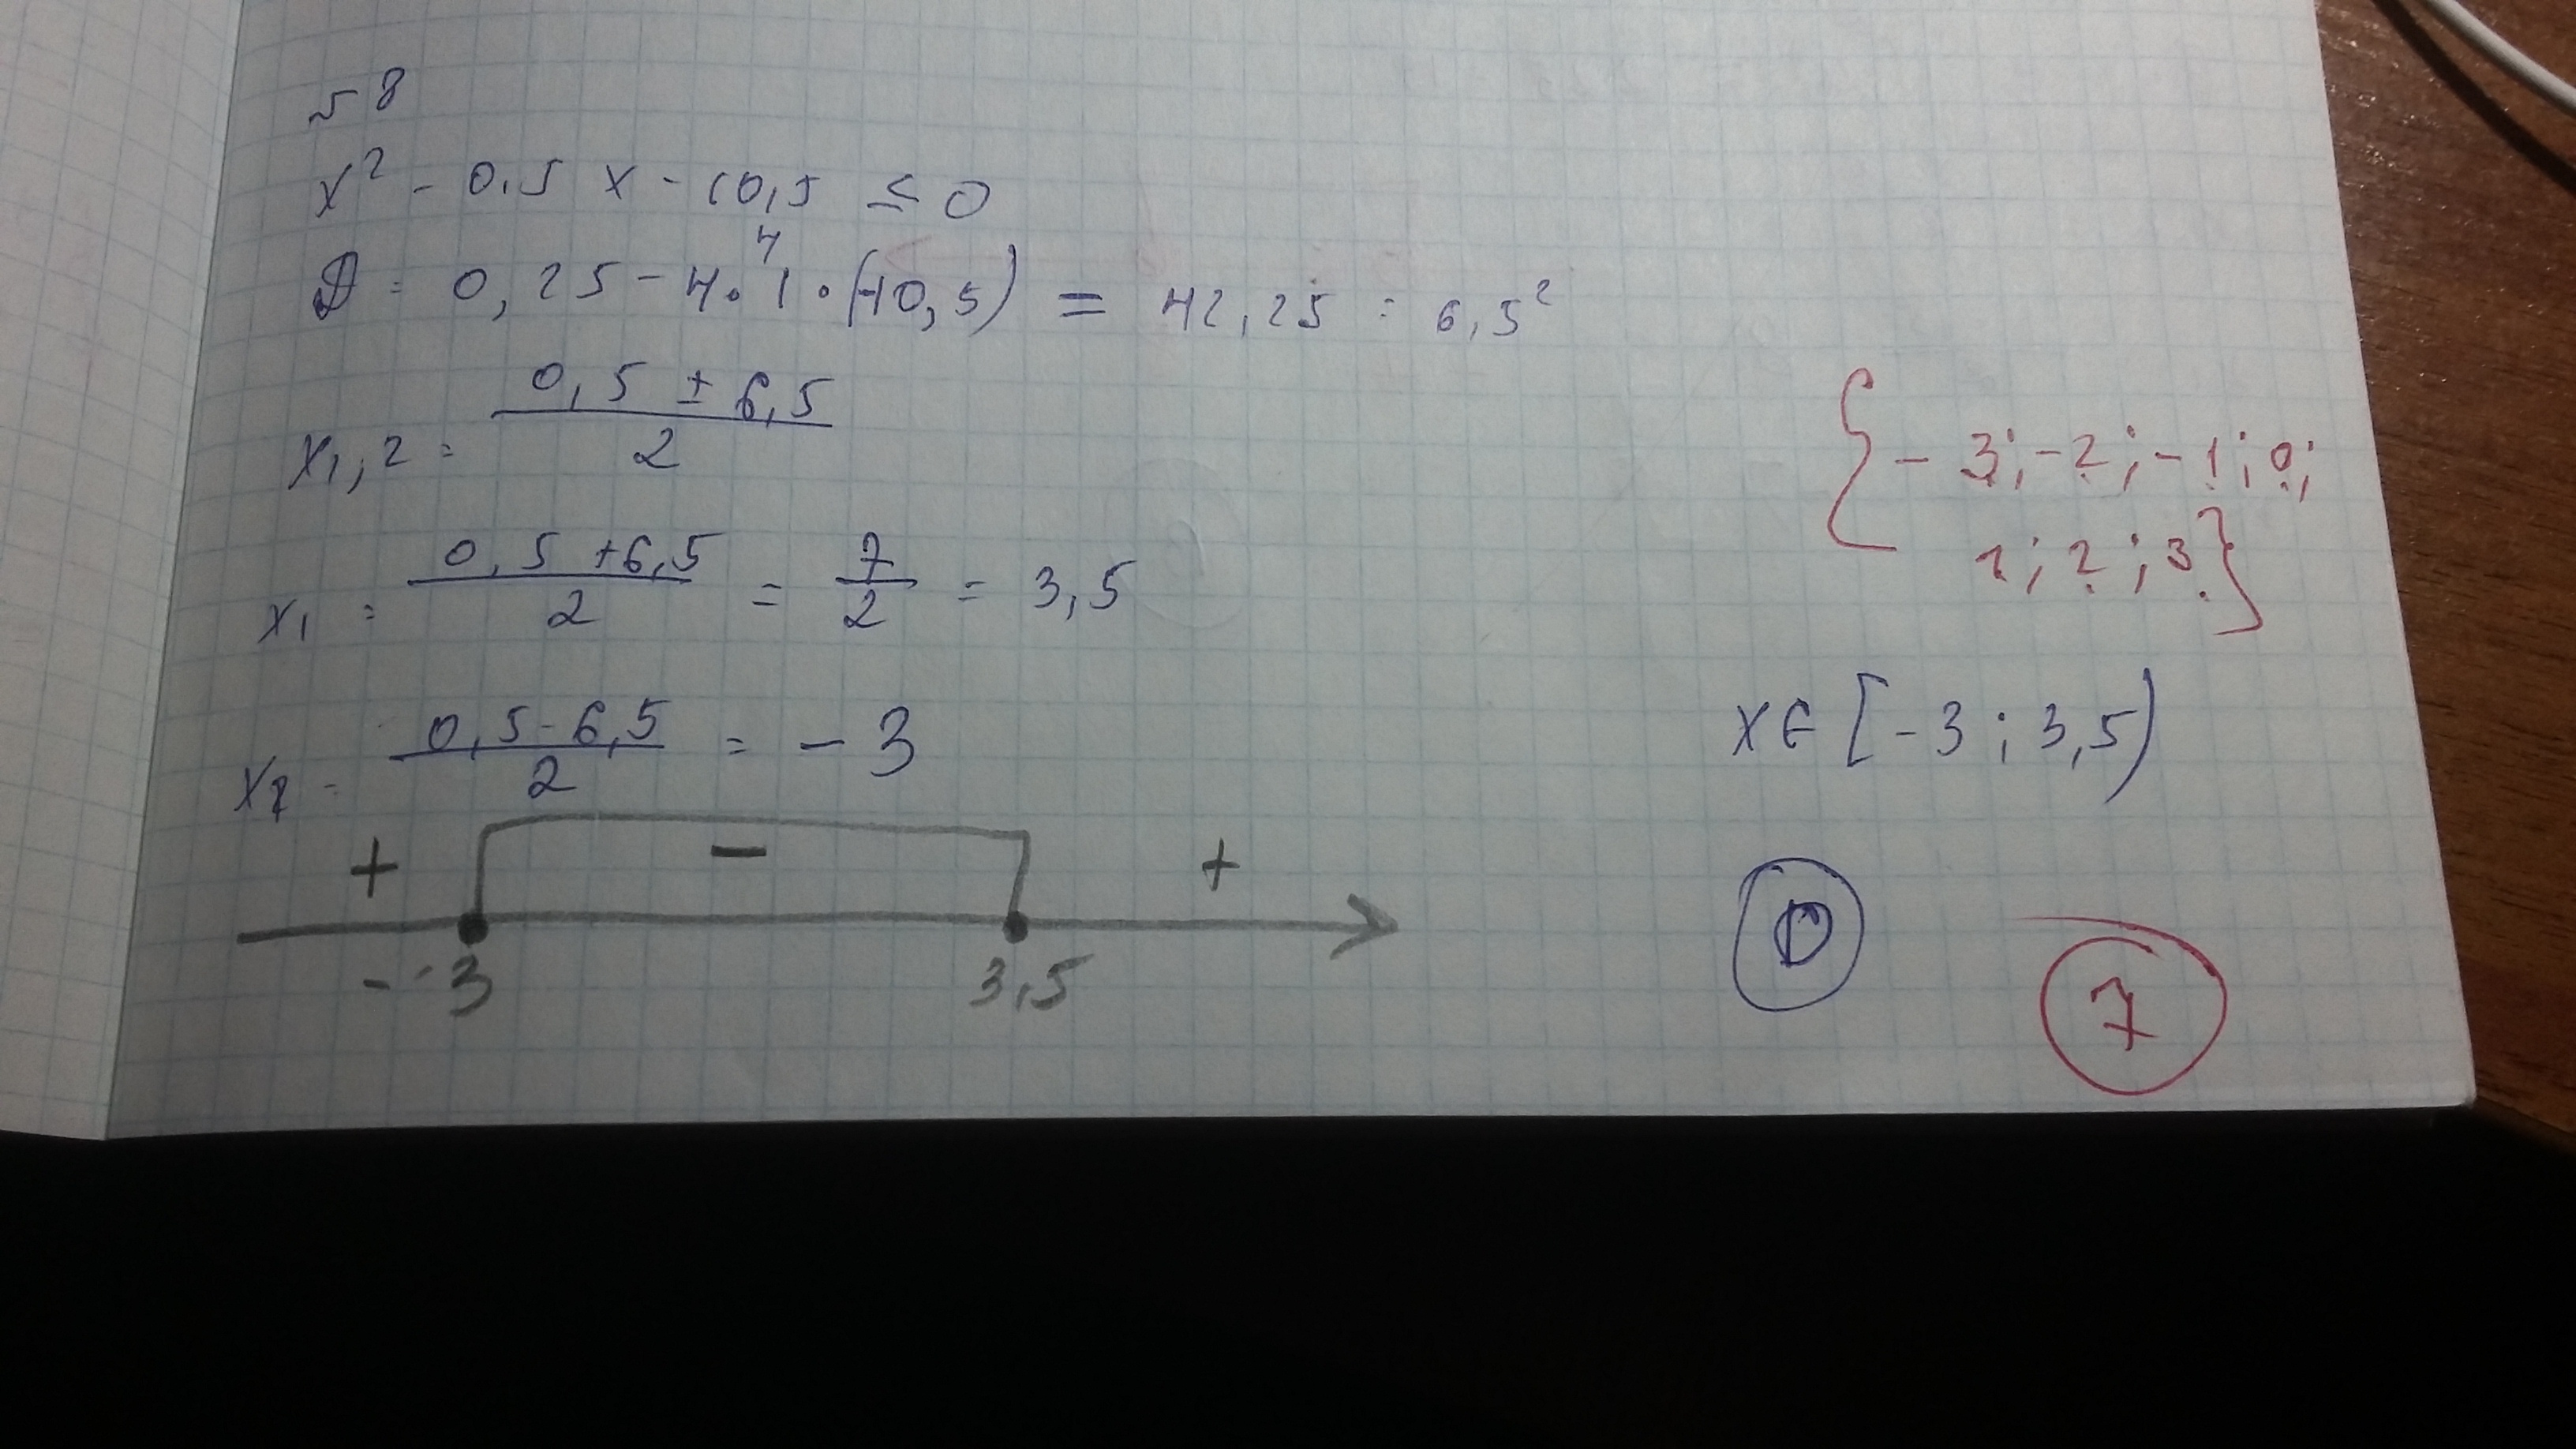 № 8
x² - 0,5 x - 10,5 ≤ 0
D = 0,25 - 4 · 1 · (-10,5) = 42,25 = 6,5²
4
x₁,₂ = (0,5 ± 6,5) / 2
x₁ = (0,5 + 6,5) / 2 = 7/2 = 3,5
x₂ = (0,5 - 6,5) / 2 = - 3
+ - +
- 3 3,5
{- 3; -2; -1; 0;
1; 2; 3}
x ∈ [-3; 3,5)
7